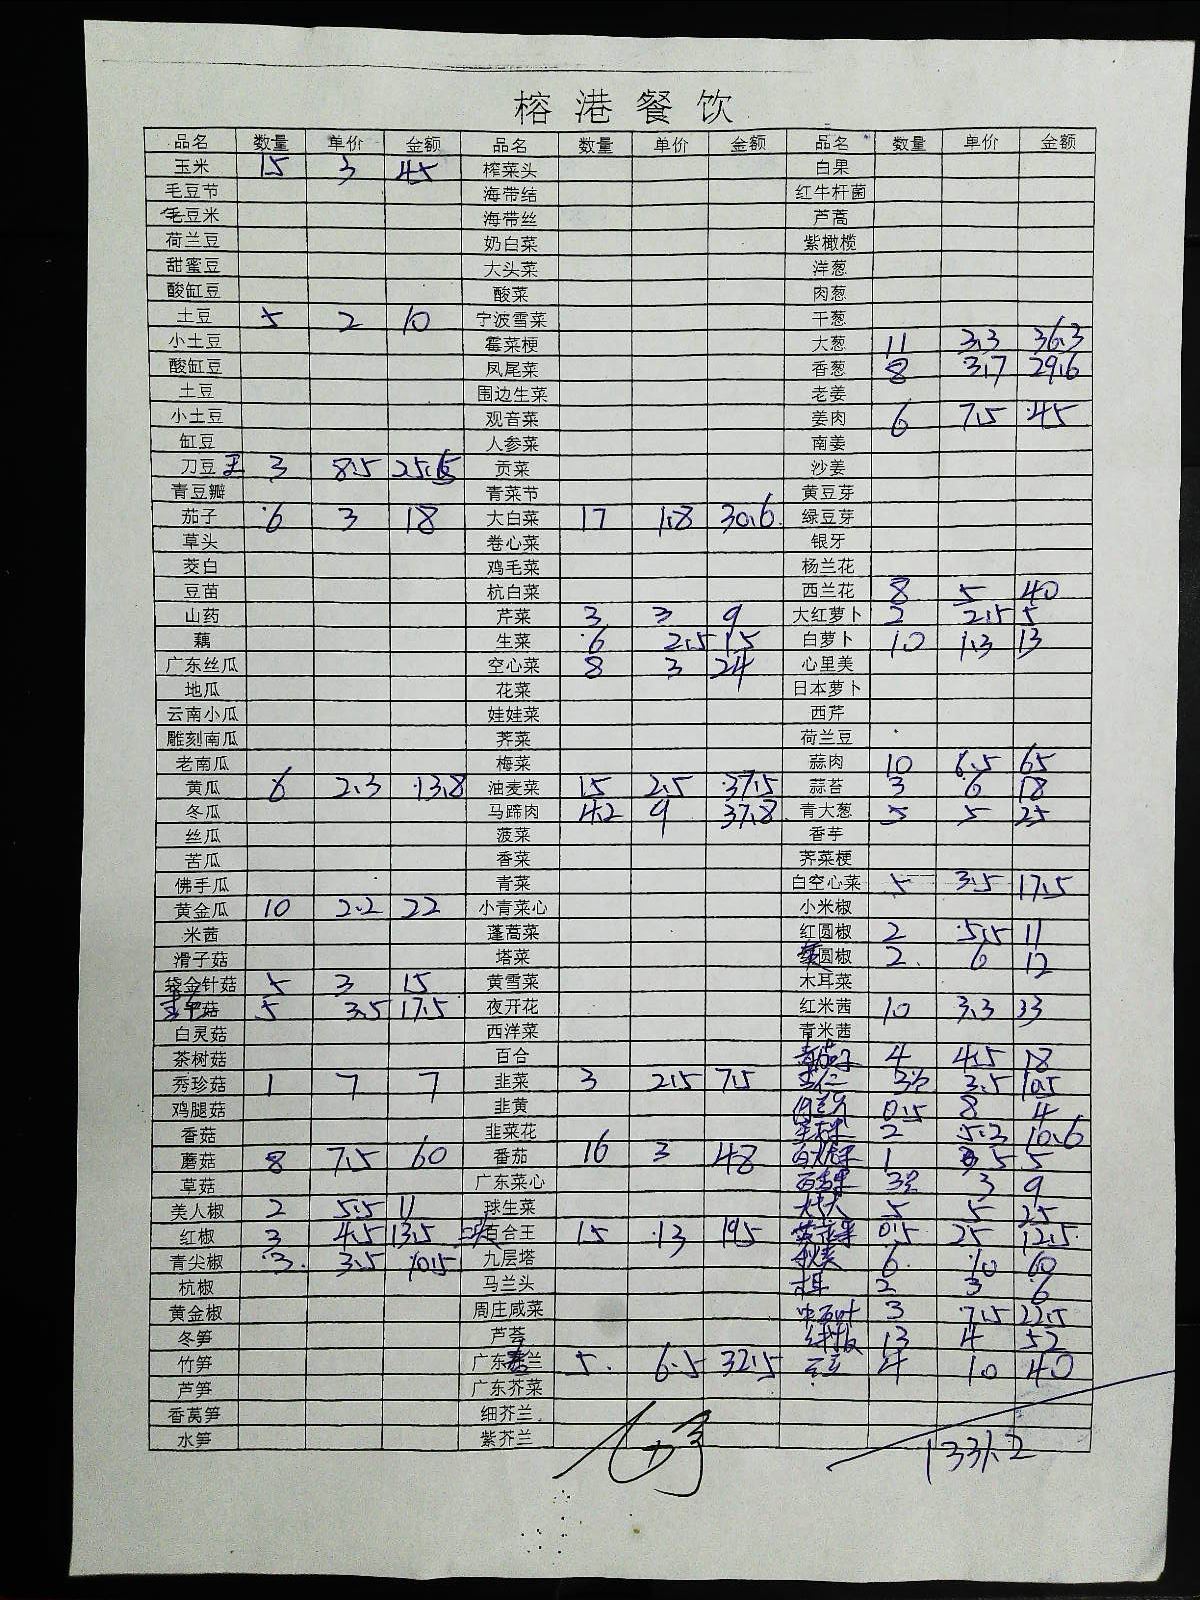 榕港餐饮
品名 数量 单价 金额 品名 数量 单价 金额 品名 数量 单价 金额
玉米 15 3 45 榨菜头 白果
毛豆节 海带结 红牛杆菌
毛豆米 海带丝 芦蒿
荷兰豆 奶白菜 紫橄榄
甜蜜豆 大头菜 洋葱
酸缸豆 酸菜 肉葱
土豆 5 2 10 宁波雪菜 干葱
小土豆 霉菜梗 大葱 11 3.3 36.3
酸缸豆 凤尾菜 香葱 8 3.7 29.6
土豆 围边生菜 老姜
小土豆 观音菜 姜肉 6 7.5 45
缸豆 人参菜 南姜
刀豆 3 8.5 25.5 贡菜 沙姜
青豆瓣 青菜节 黄豆芽
茄子 6 3 18 大白菜 17 1.8 30.6 绿豆芽
草头 卷心菜 银牙
茭白 鸡毛菜 杨兰花
豆苗 杭白菜 西兰花 8 5 40
山药 芹菜 3 3 9 大红萝卜 2 2.5 5
藕 生菜 6 2.5 15 白萝卜 10 1.3 13
广东丝瓜 空心菜 8 3 24 心里美
地瓜 花菜 日本萝卜
云南小瓜 娃娃菜 西芹
雕刻南瓜 荠菜 荷兰豆
老南瓜 梅菜 蒜肉 10 6.5 65
黄瓜 6 2.3 13.8 油麦菜 15 2.5 37.5 蒜苔 3 6 18
冬瓜 马蹄肉 4.2 9 37.8 青大葱 5 5 25
丝瓜 菠菜 香芋
苦瓜 香菜 荠菜梗
佛手瓜 青菜 白空心菜 5 3.5 17.5
黄金瓜 10 2.2 22 小青菜心 小米椒
米茜 蓬蒿菜 红圆椒 2 5.5 11
滑子菇 塔菜 圆椒 2 6 12
袋金针菇 5 3 15 黄雪菜 木耳菜
菇 5 3.5 17.5 夜开花 红米茜 10 3.3 33
白灵菇 西洋菜 青米茜
茶树菇 百合 青茄子 4 4.5 18
秀珍菇 1 7 7 韭菜 3 2.5 7.5 3 3.5 10.5
鸡腿菇 韭黄 0.5 8 4
香菇 韭菜花 2 5.3 10.6
蘑菇 8 7.5 60 番茄 16 3 48 1 5 5
草菇 广东菜心 3 3 9
美人椒 2 5.5 11 球生菜 5 5 25
红椒 3 4.5 13.5 百合王 15 13 195 0.5 25 12.5
青尖椒 3 3.5 10.5 九层塔 6 10 60
杭椒 马兰头 2 3 6
黄金椒 周庄咸菜 3 7.5 22.5
冬笋 芦荟 13 4 52
竹笋 广东兰 5 6.5 32.5 4 10 40
芦笋 广东芥菜
香莴笋 细芥兰
水笋 紫芥兰
1331.2